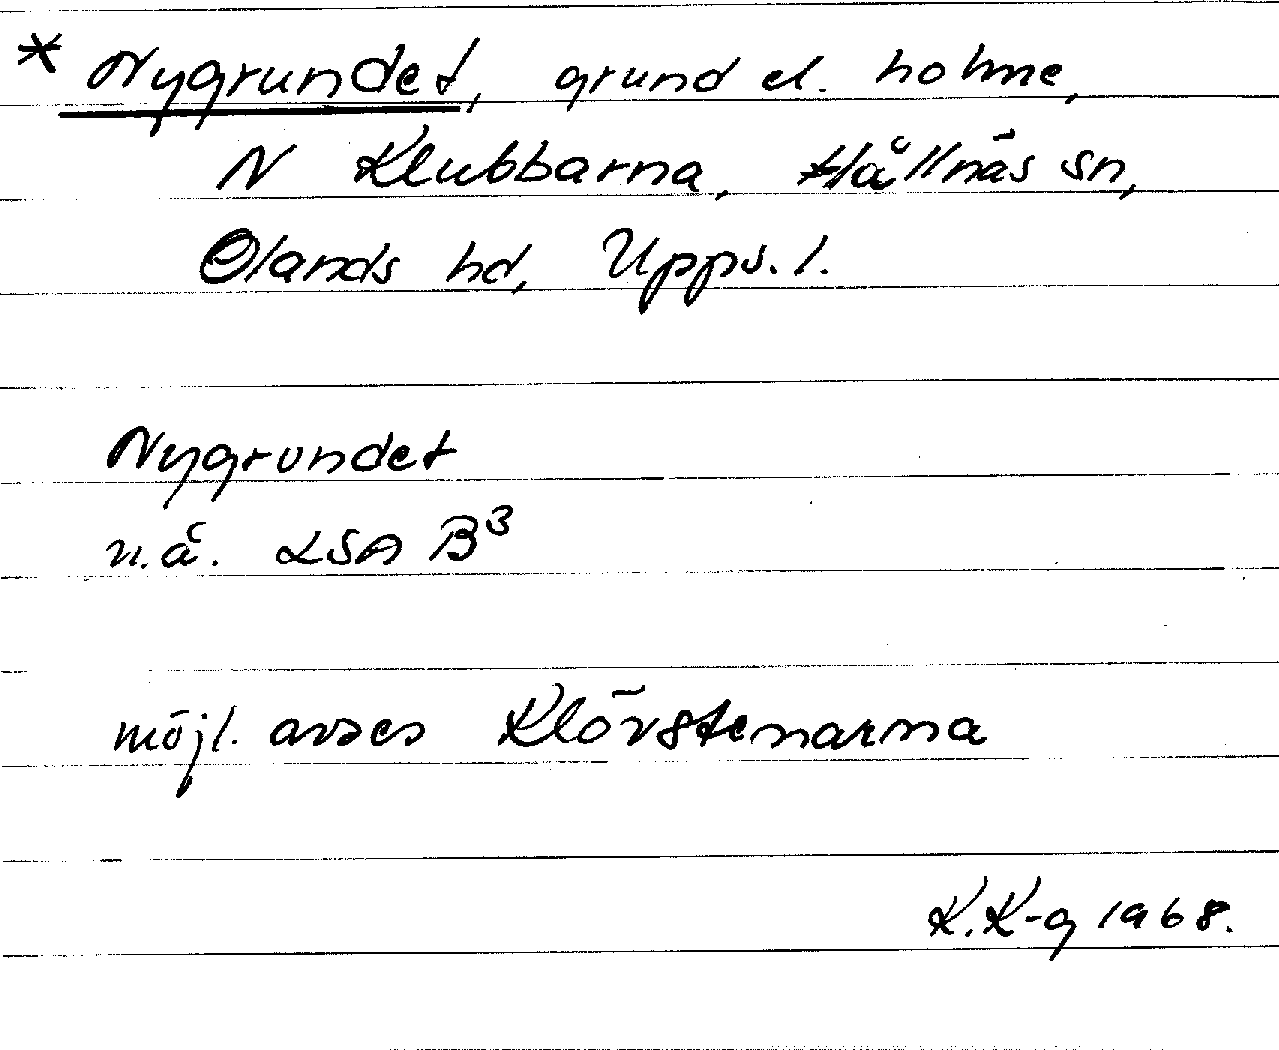 * Nygrundet, grund el. holme,
N Klubbarna, Hållnäs sn,
Olands hd, Upps. l.
Nygrundet
n.å. LSA B³
möjl. avses Klövstenarna
K.K-g 1968.